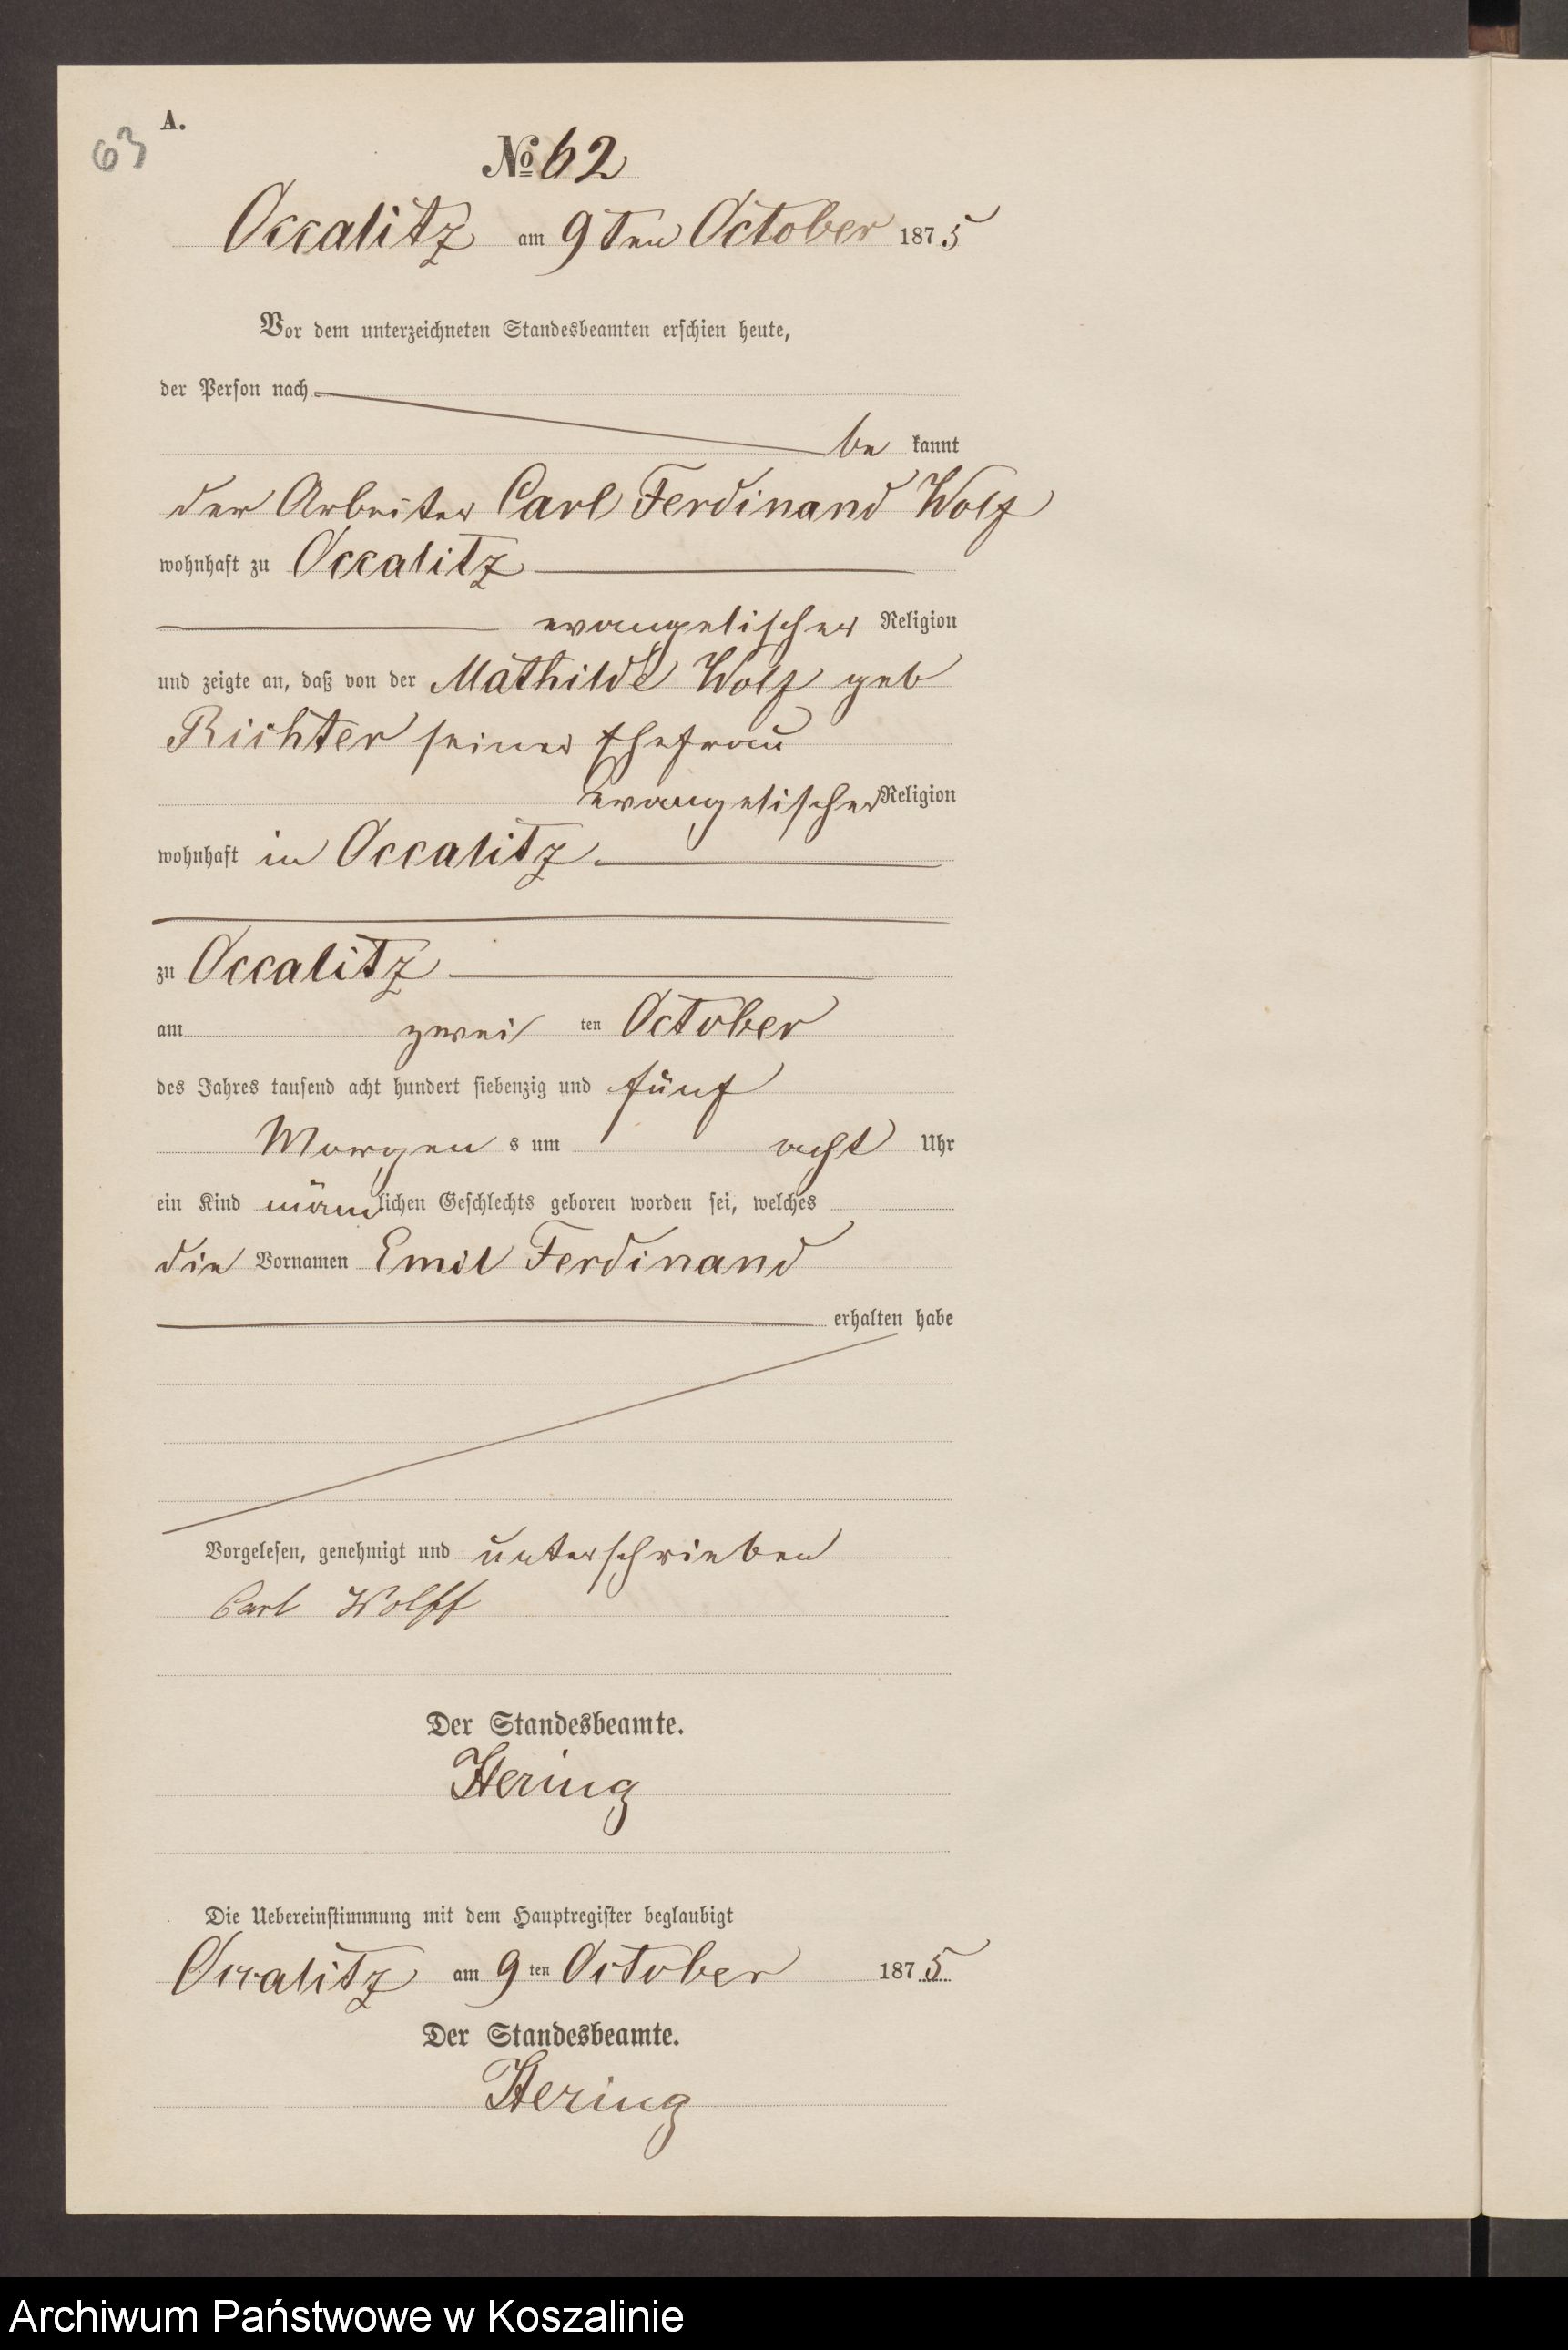 A.
63
№ 62
Occalitz am 9ten October 1875
Vor dem unterzeichneten Standesbeamten erschien heute,
der Person nach
be kannt
der Arbeiter Carl Ferdinand Wolf
wohnhaft zu Occalitz
evangelischer Religion
und zeigte an, daß von der Mathilde Wolf geb
Richter seiner Ehefrau
evangelischer Religion
wohnhaft in Occalitz
zu Occalitz
am zwei ten October
des Jahres tausend acht hundert siebenzig und fünf
Morgen s um acht Uhr
ein Kind mänlichen Geschlechts geboren worden sei, welches
die Vornamen Emil Ferdinand
erhalten habe
Vorgelesen, genehmigt und unterschrieben
Carl Wolff
Der Standesbeamte.
Hering
Die Uebereinstimmung mit dem Hauptregister beglaubigt
Occalitz am 9 ten October 1875
Der Standesbeamte.
Hering
Archiwum Państwowe w Koszalinie